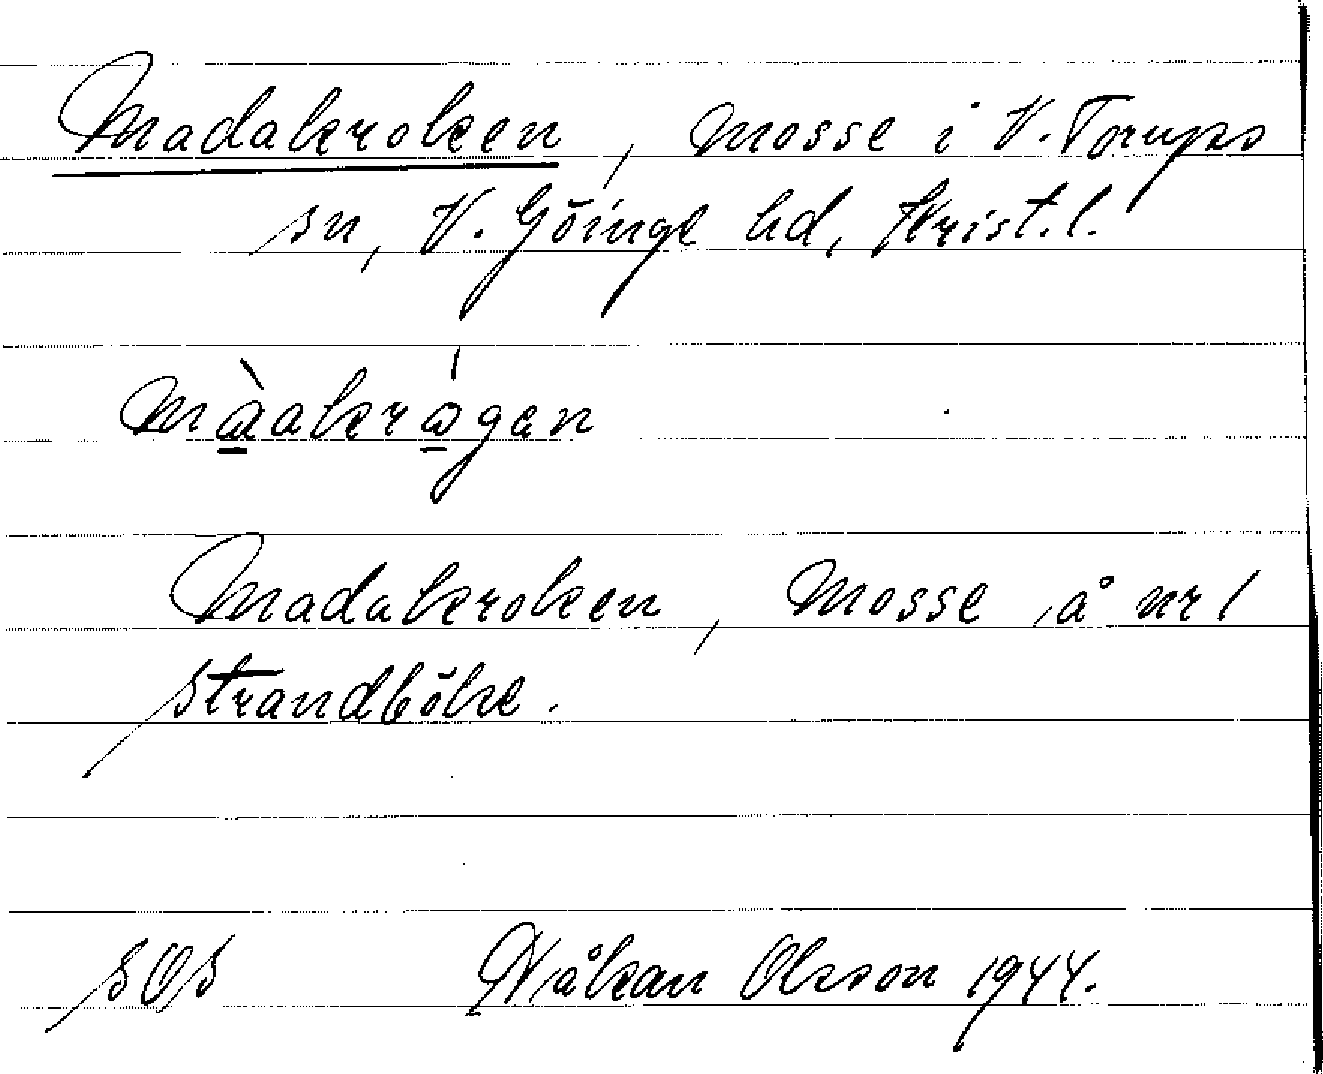 Madakroken, mosse i V. Torups
sn, V. Göinge hd, Krist. l.
màakrógen
Madakroken, mosse å nr 1
Strandböke.
SOS Håkan Olsson 1944.